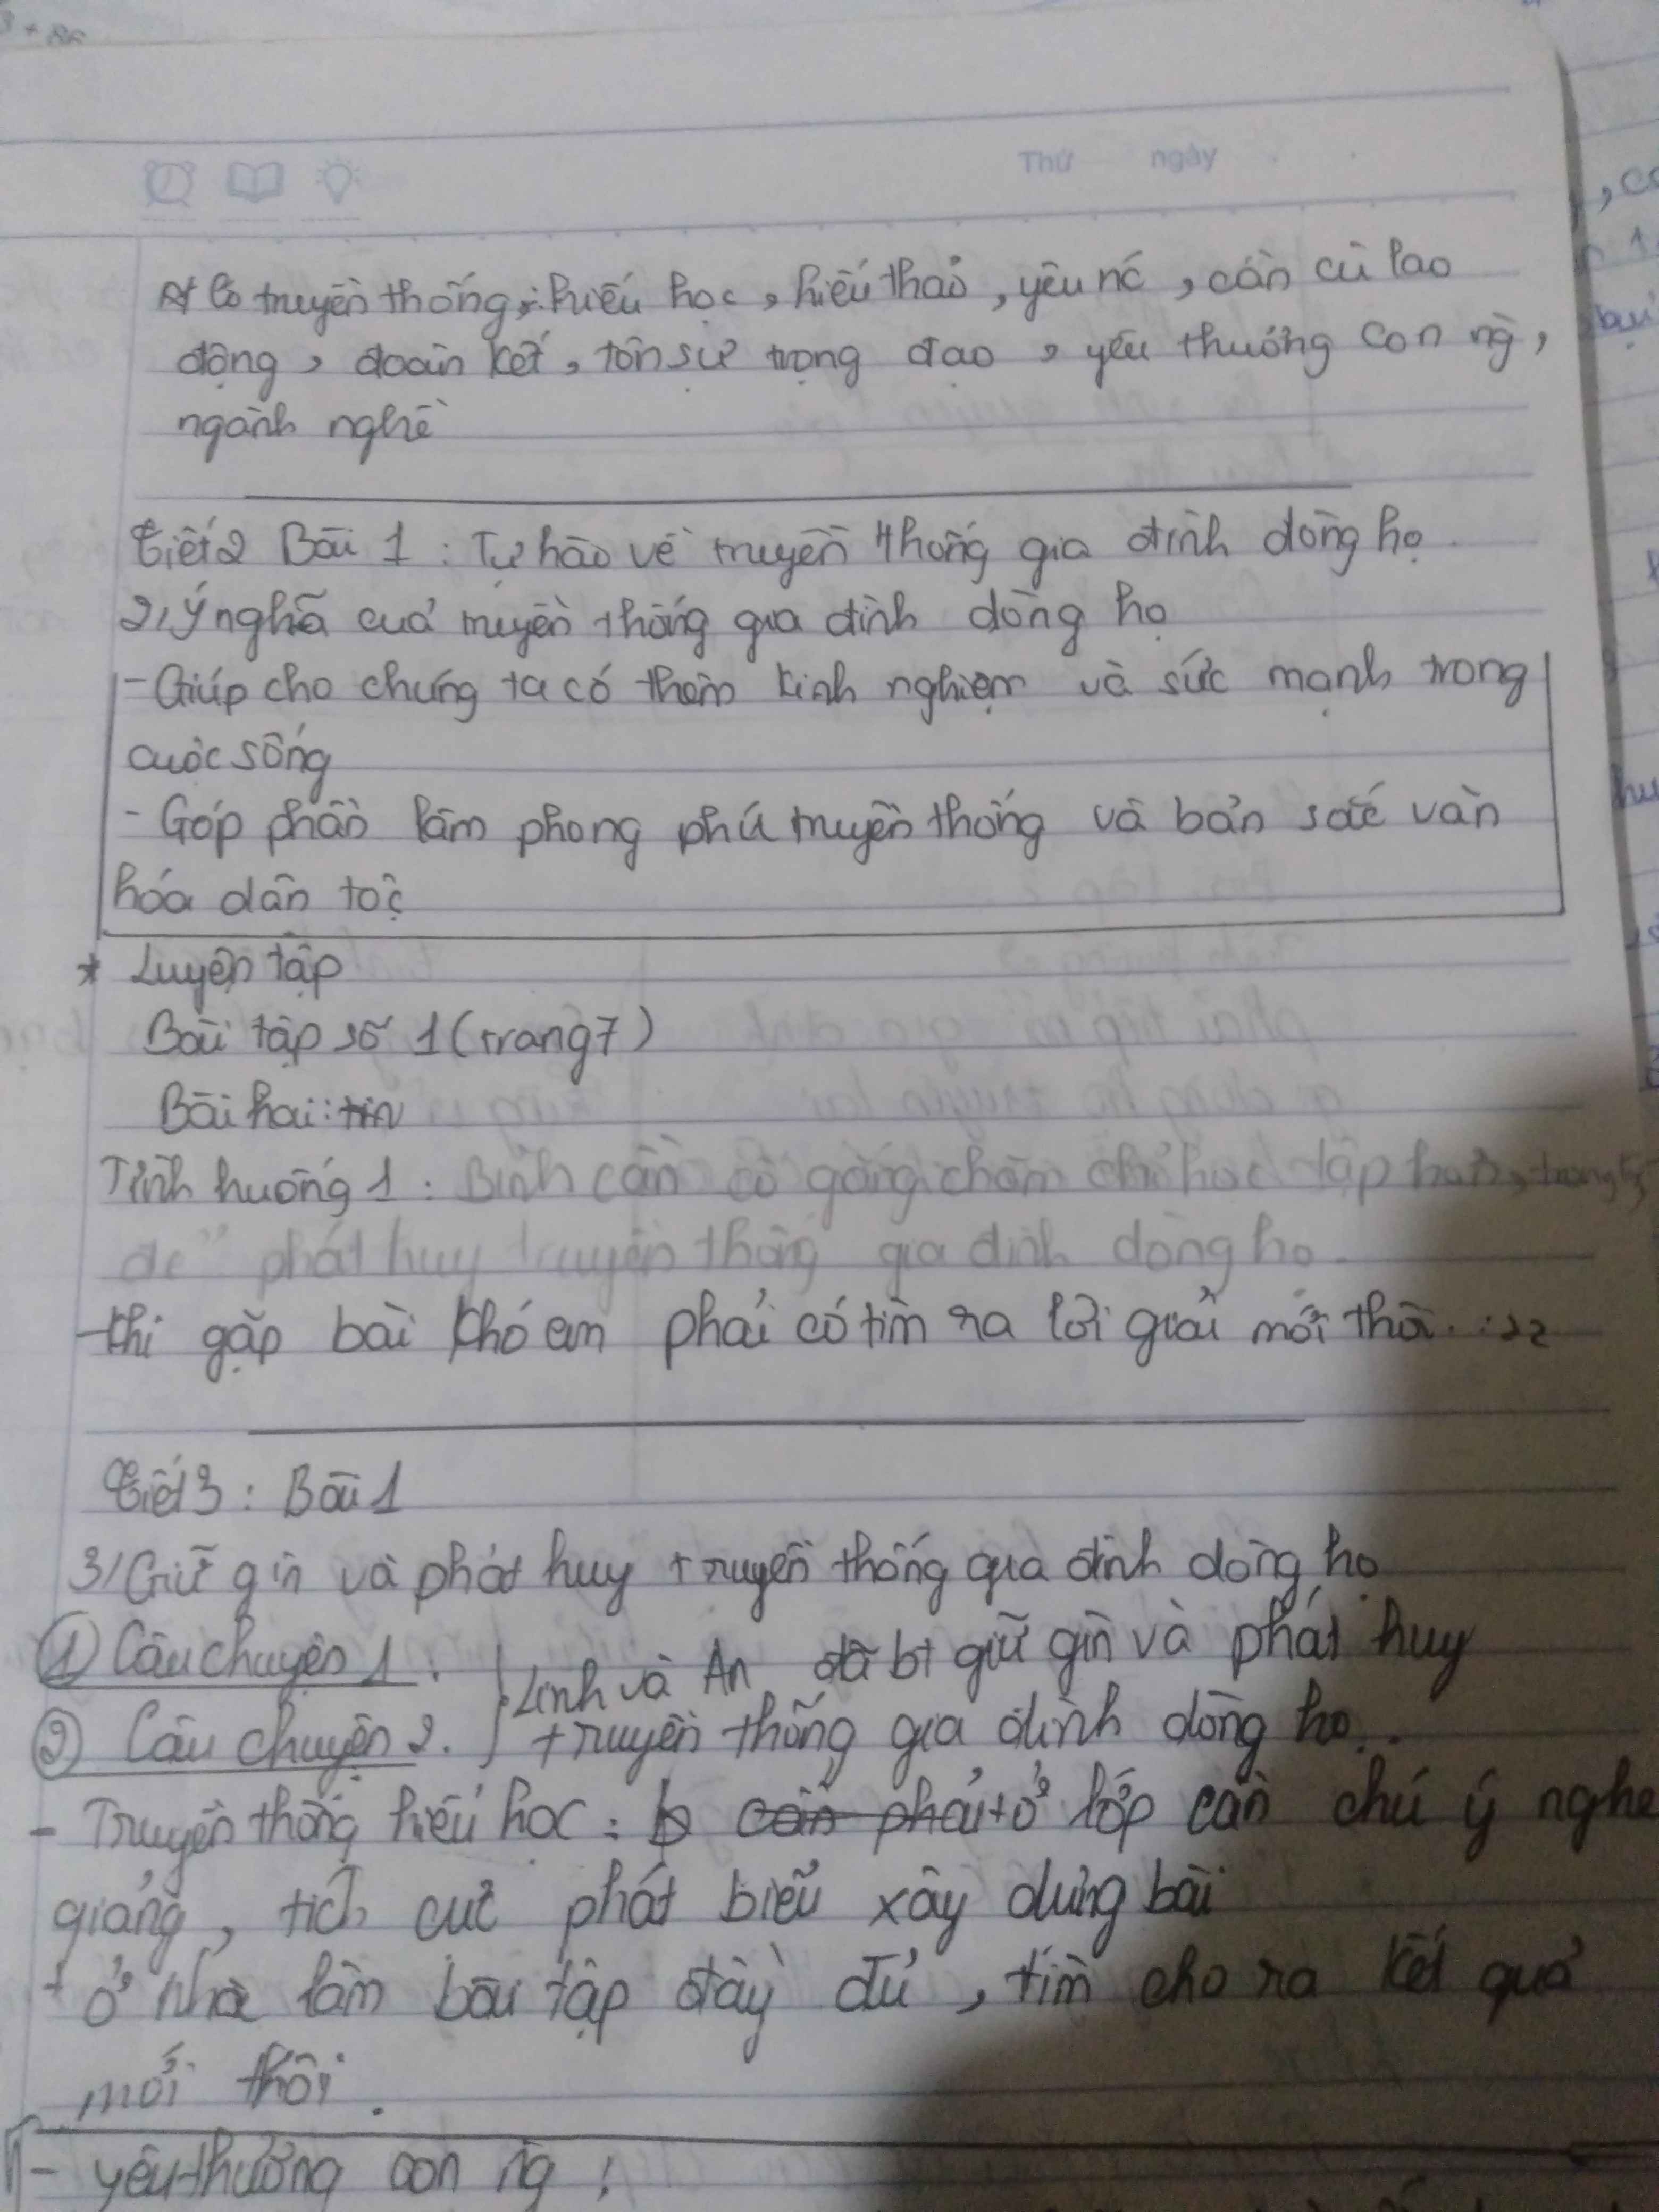 Thứ ngày
Có truyền thống: hiếu học, hiếu thảo, yêu nc, cần cù lao
động, đoàn kết, tôn sư trọng đạo, yêu thương con ng,
ngành nghề
Tiết 2 Bài 1: Tự hào về truyền thống gia đình dòng họ.
2, Ý nghĩa cuả truyền thống gia đình dòng họ
- Giúp cho chúng ta có thêm kinh nghiệm và sức mạnh trong
cuộc sống
- Góp phần làm phong phú truyền thống và bản sắc văn
hóa dân tộc
* Luyện tập
Bài tập số 1 (trang 7)
Bài hai: tin
Tình huống 1: Bình cần cố gắng chăm chỉ học tập hơn,
để phát huy truyền thống gia đình dòng họ.
- khi gặp bài khó em phải có tìm ra lời giải mới thôi.
Tiết 3: Bài 1
3/ Giữ gìn và phát huy truyền thống gia đình dòng họ
① Câu chuyện 1: Linh và An đã bt giữ gìn và phát huy
② Câu chuyện 2. truyền thống gia đình dòng họ.
- Truyền thống hiếu học: cần phải + ở lớp cần chú ý nghe
giảng, tích cực phát biểu xây dựng bài
+ ở nhà làm bài tập đầy đủ, tìm cho ra kết quả
mới thôi.
- yêu thương con ng: